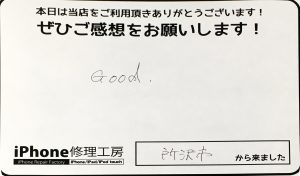 本日は当店をご利用頂きありがとうございます！
ぜひご感想をお願いします！
Good.
iPhone修理工房
iPhone Repair Factory iPhone/iPad/iPod touch
所沢市 から来ました